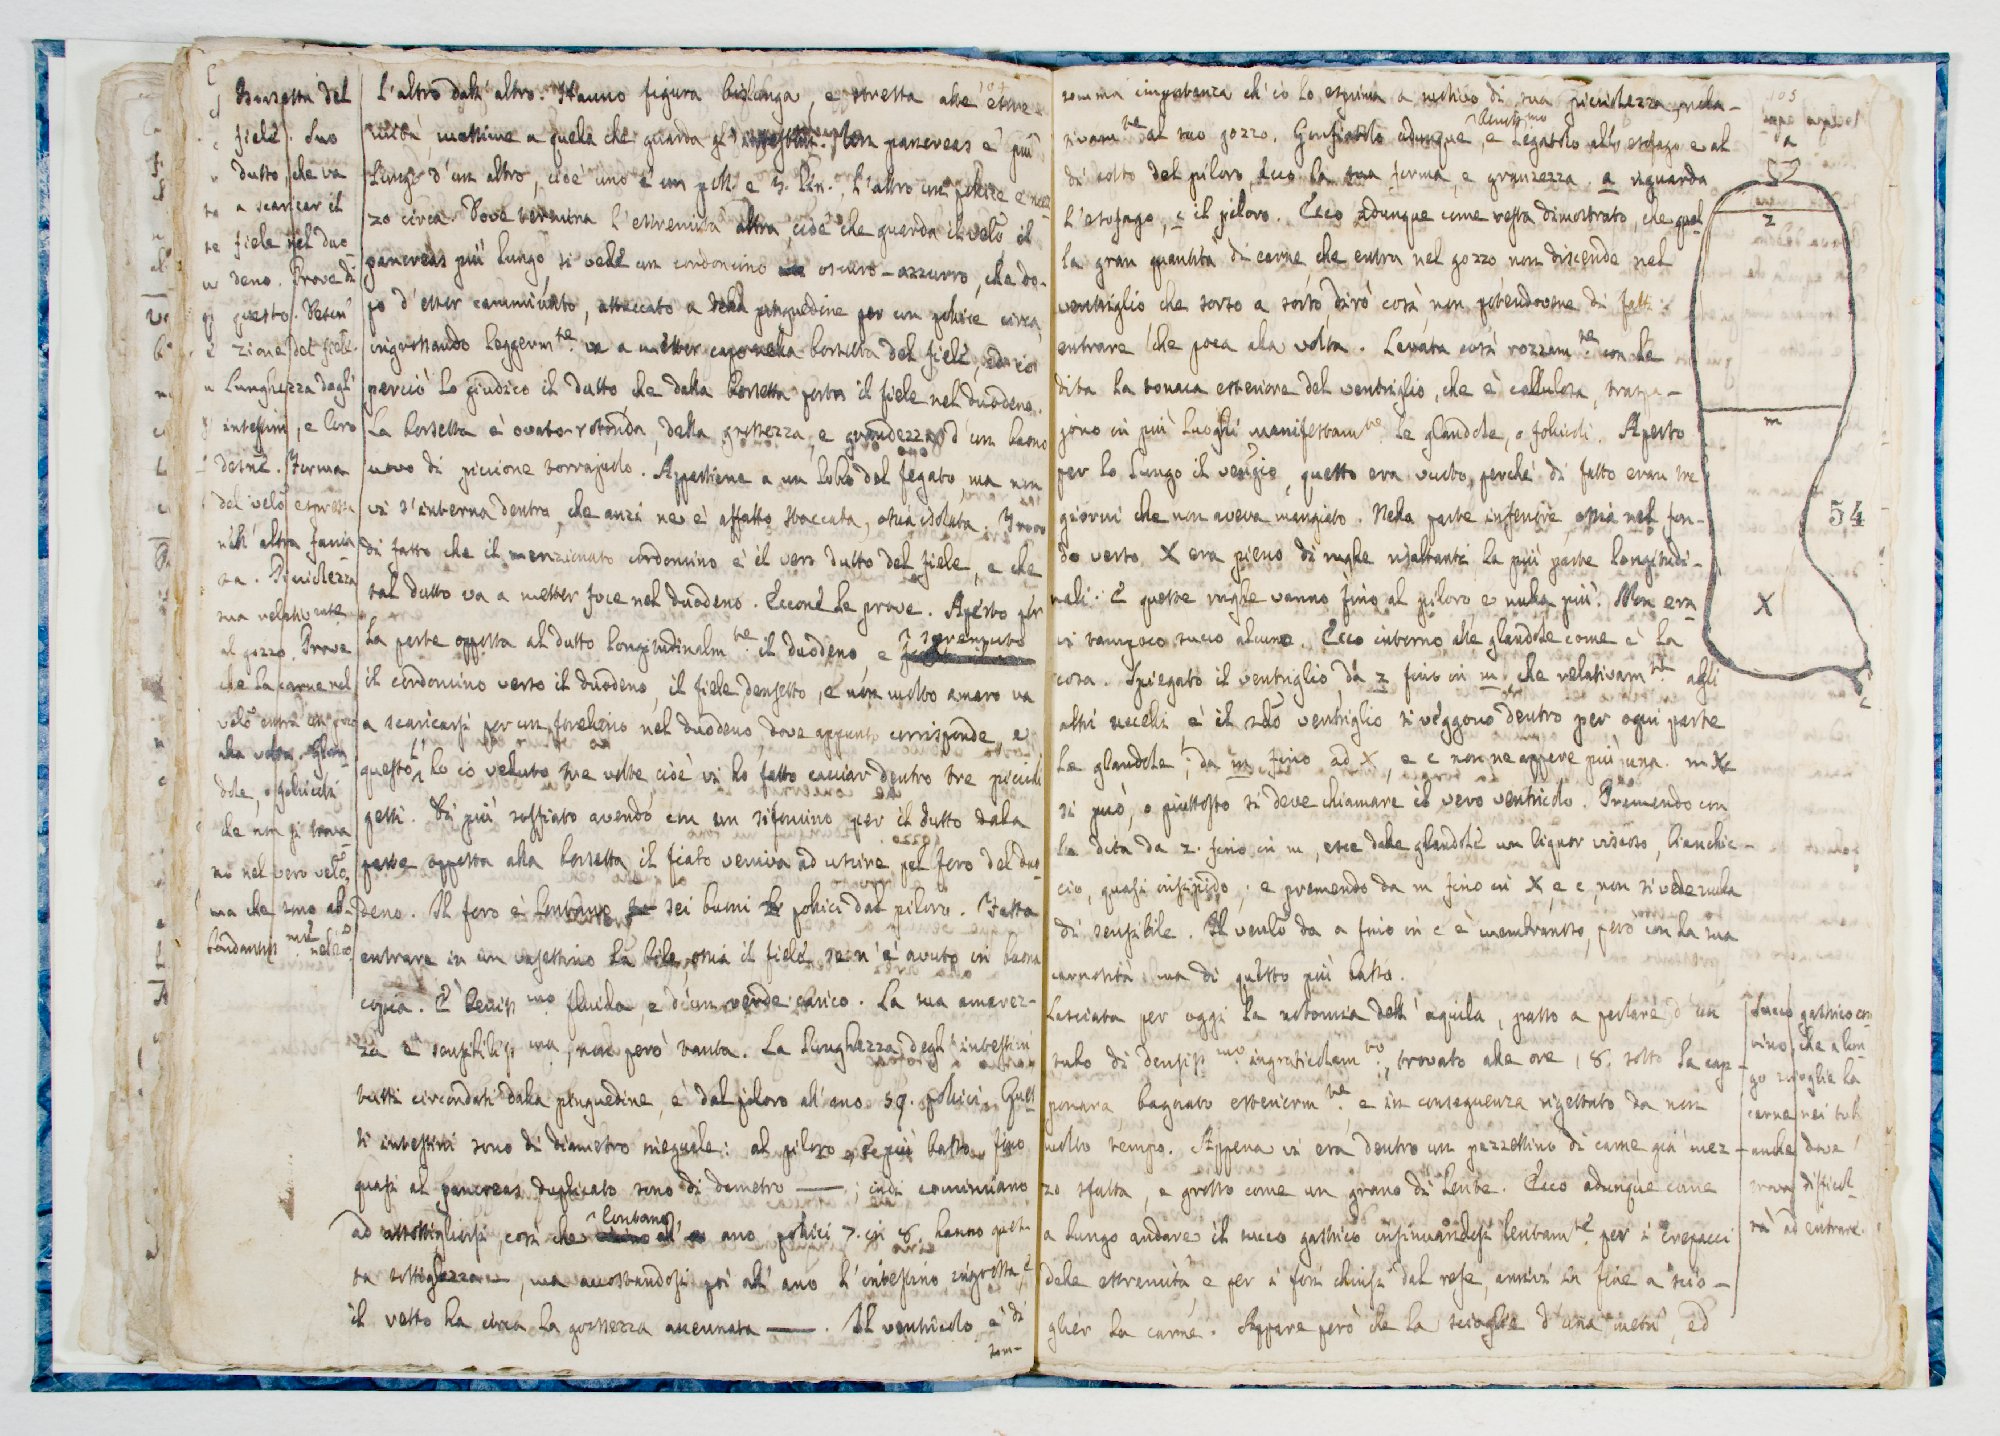 Borsetta del
fiele. Suo
dutto che va
a scaricar il
fiele nel duo-
deno. Prove di
questo. Descri-
zione del fiele
Lunghezza degli
intestini, e loro
Forma
del velo espressa
nell'altra faccia-
ta. Picciolezza
sua relativamte
al gozzo. Prove
che la carne nel
velo entra un poco
alla volta. Glan-
dole, o follicoli
che non si trova-
no nel vero velo,
ma che sono ab-
bondantissmi nel
l'altro dall'altro. Hanno figura bislunga, e stretta alle estre-
mità, massime a quella che guarda gl' Un pancreas è più
lungo d'un altro, cioè uno è un poll. e 3. lin., l'altro un pollice e mez-
zo circa. Dove termina l'estremità altra, cioè che guarda il velo il
pancreas più lungo, si vede un cordoncino oscuro-azzurro, che do-
po d'esser camminato, attaccato a della pinguedine per un pollice circa,
ingrossando leggermte va a metter capo nella borsetta del fiele, ed io
perciò lo giudico il dutto che dalla borsetta porta il fiele nel duodeno.
La borsetta è ovato-rotonda, della grossezza, e grandezza d'un buono
uovo di piccione torrajuolo. Appartiene a un lobo del fegato, ma non
vi s'interna dentro, che anzi ne è affatto staccata, ossia isolata. Trovo
di fatto che il menzionato cordoncino è il vero dutto del fiele, e che
tal dutto va a metter foce nel duodeno. Eccone le prove. Aperto per
la parte opposta al dutto longitudinalmte il duodeno, e spremuto
il cordoncino verso il duodeno, il fiele densetto, e non molto amaro va
a scaricarsi per un forellino nel duodeno, dove appunto corrisponde, e
questo l'ho io veduto tre volte, cioè vi ho fatto cacciar dentro tre piccioli
getti. Di più soffiato avendo con un sifoncino per il dutto dalla
parte opposta alla borsetta il fiato veniva ad uscire pel foro del duo-
deno. Il foro è lontano sei buoni pollici dal piloro. Fatta
entrare in un vasettino la bile, ossia il fiele se n'è avuto in buona
copia. È fluida, e d'un verde carico. La sua amarez-
za è sensibilissma, non però tanta. La lunghezza degl'intestini
tutti circondati dalla pinguedine, è dal piloro all'ano 59. pollici. Quest
ti intestini sono di diametro ineguale: al piloro, e più basso fino
quasi al pancreas duplicato sono di diametro —— ; indi cominciano
ad assottigliarsi, così che lontano all' ano pollici 7. in 8. hanno ques-
ta sottigliezza —, ma accostandosi poi all'ano l'intestino ingrossa, e
il retto ha circa la grossezza accennata ——. Il ventricolo è di
som-
105
somma importanza ch'io lo esprima a motivo di sua picciolezza rela-
tivamte al suo gozzo. Gonfiatolo adunque, e legatolo all'esofago e al
di sotto del piloro, ecco la sua forma, e grandezza. a riguarda
l'esofago, c il piloro. Ecco adunque come resta dimostrato, che quel-
la gran quantità di carne che entra nel gozzo non discende nel
ventriglio che sorso a sorso dirò così, non potendovene di fatti
entrare che poca alla volta. Levata così rozzamte con le
dita la tonaca esteriore del ventriglio, che è cellulosa, traspa-
jono in più luoghi manifestamte le glandole, o follicoli. Aperto
per lo lungo il questo era vuoto, perchè di fatto eran tre
giorni che non aveva mangiato. Nella parte inferiore, ossia nel fon-
do verso X era pieno di rughe risaltanti la più parte longitudi-
nali. E queste rughe vanno fino al piloro e nulla più. Non era-
vi tampoco succo alcuno. Ecco intorno alle glandole come è la
cosa. Spiegato il ventriglio da z fino in m, che relativamte agli
altri uccelli, è il solo ventriglio si veggono dentro per ogni parte
le glandole; da m fino ad X, e c non ne appare più una. m X c
si può, o piuttosto si deve chiamare il vero ventricolo. Premendo con
le dita da z. fino in m, esce dalle glandole un liquor viscoso, bianchic-
cio, quasi insipido; e premendo da m fino in X, e c, non si vede nulla
di sensibile. Il da a fino in c è membranoso, però con la sua
carnosità ma di questo più basso.
Lasciata per oggi la notomia dell'aquila, passo a parlare d'un
tubo di densissmo ingraticolamto, trovato alle ore 18. sotto la cap-
ponara, bagnato esteriormte, e in conseguenza rigettato da non
molto tempo. Appena vi era dentro un pezzettino di carne già mez-
zo sfatta, e grosso come un grano di lente. Ecco adunque come
a lungo andare il succo gastrico insinuandosi lentamte per i crepacci
delle estremità, e per i fori chiusi dal refe, arrivi in fine a scio-
glier la carne. Appare però che la scioglie d'una metà, ed
a
z
m
54
X
c
Succo gastrico cor-
vino, che a lun-
go scioglie la
carne nei tubi
anche dove
trova difficol-
tà ad entrare.